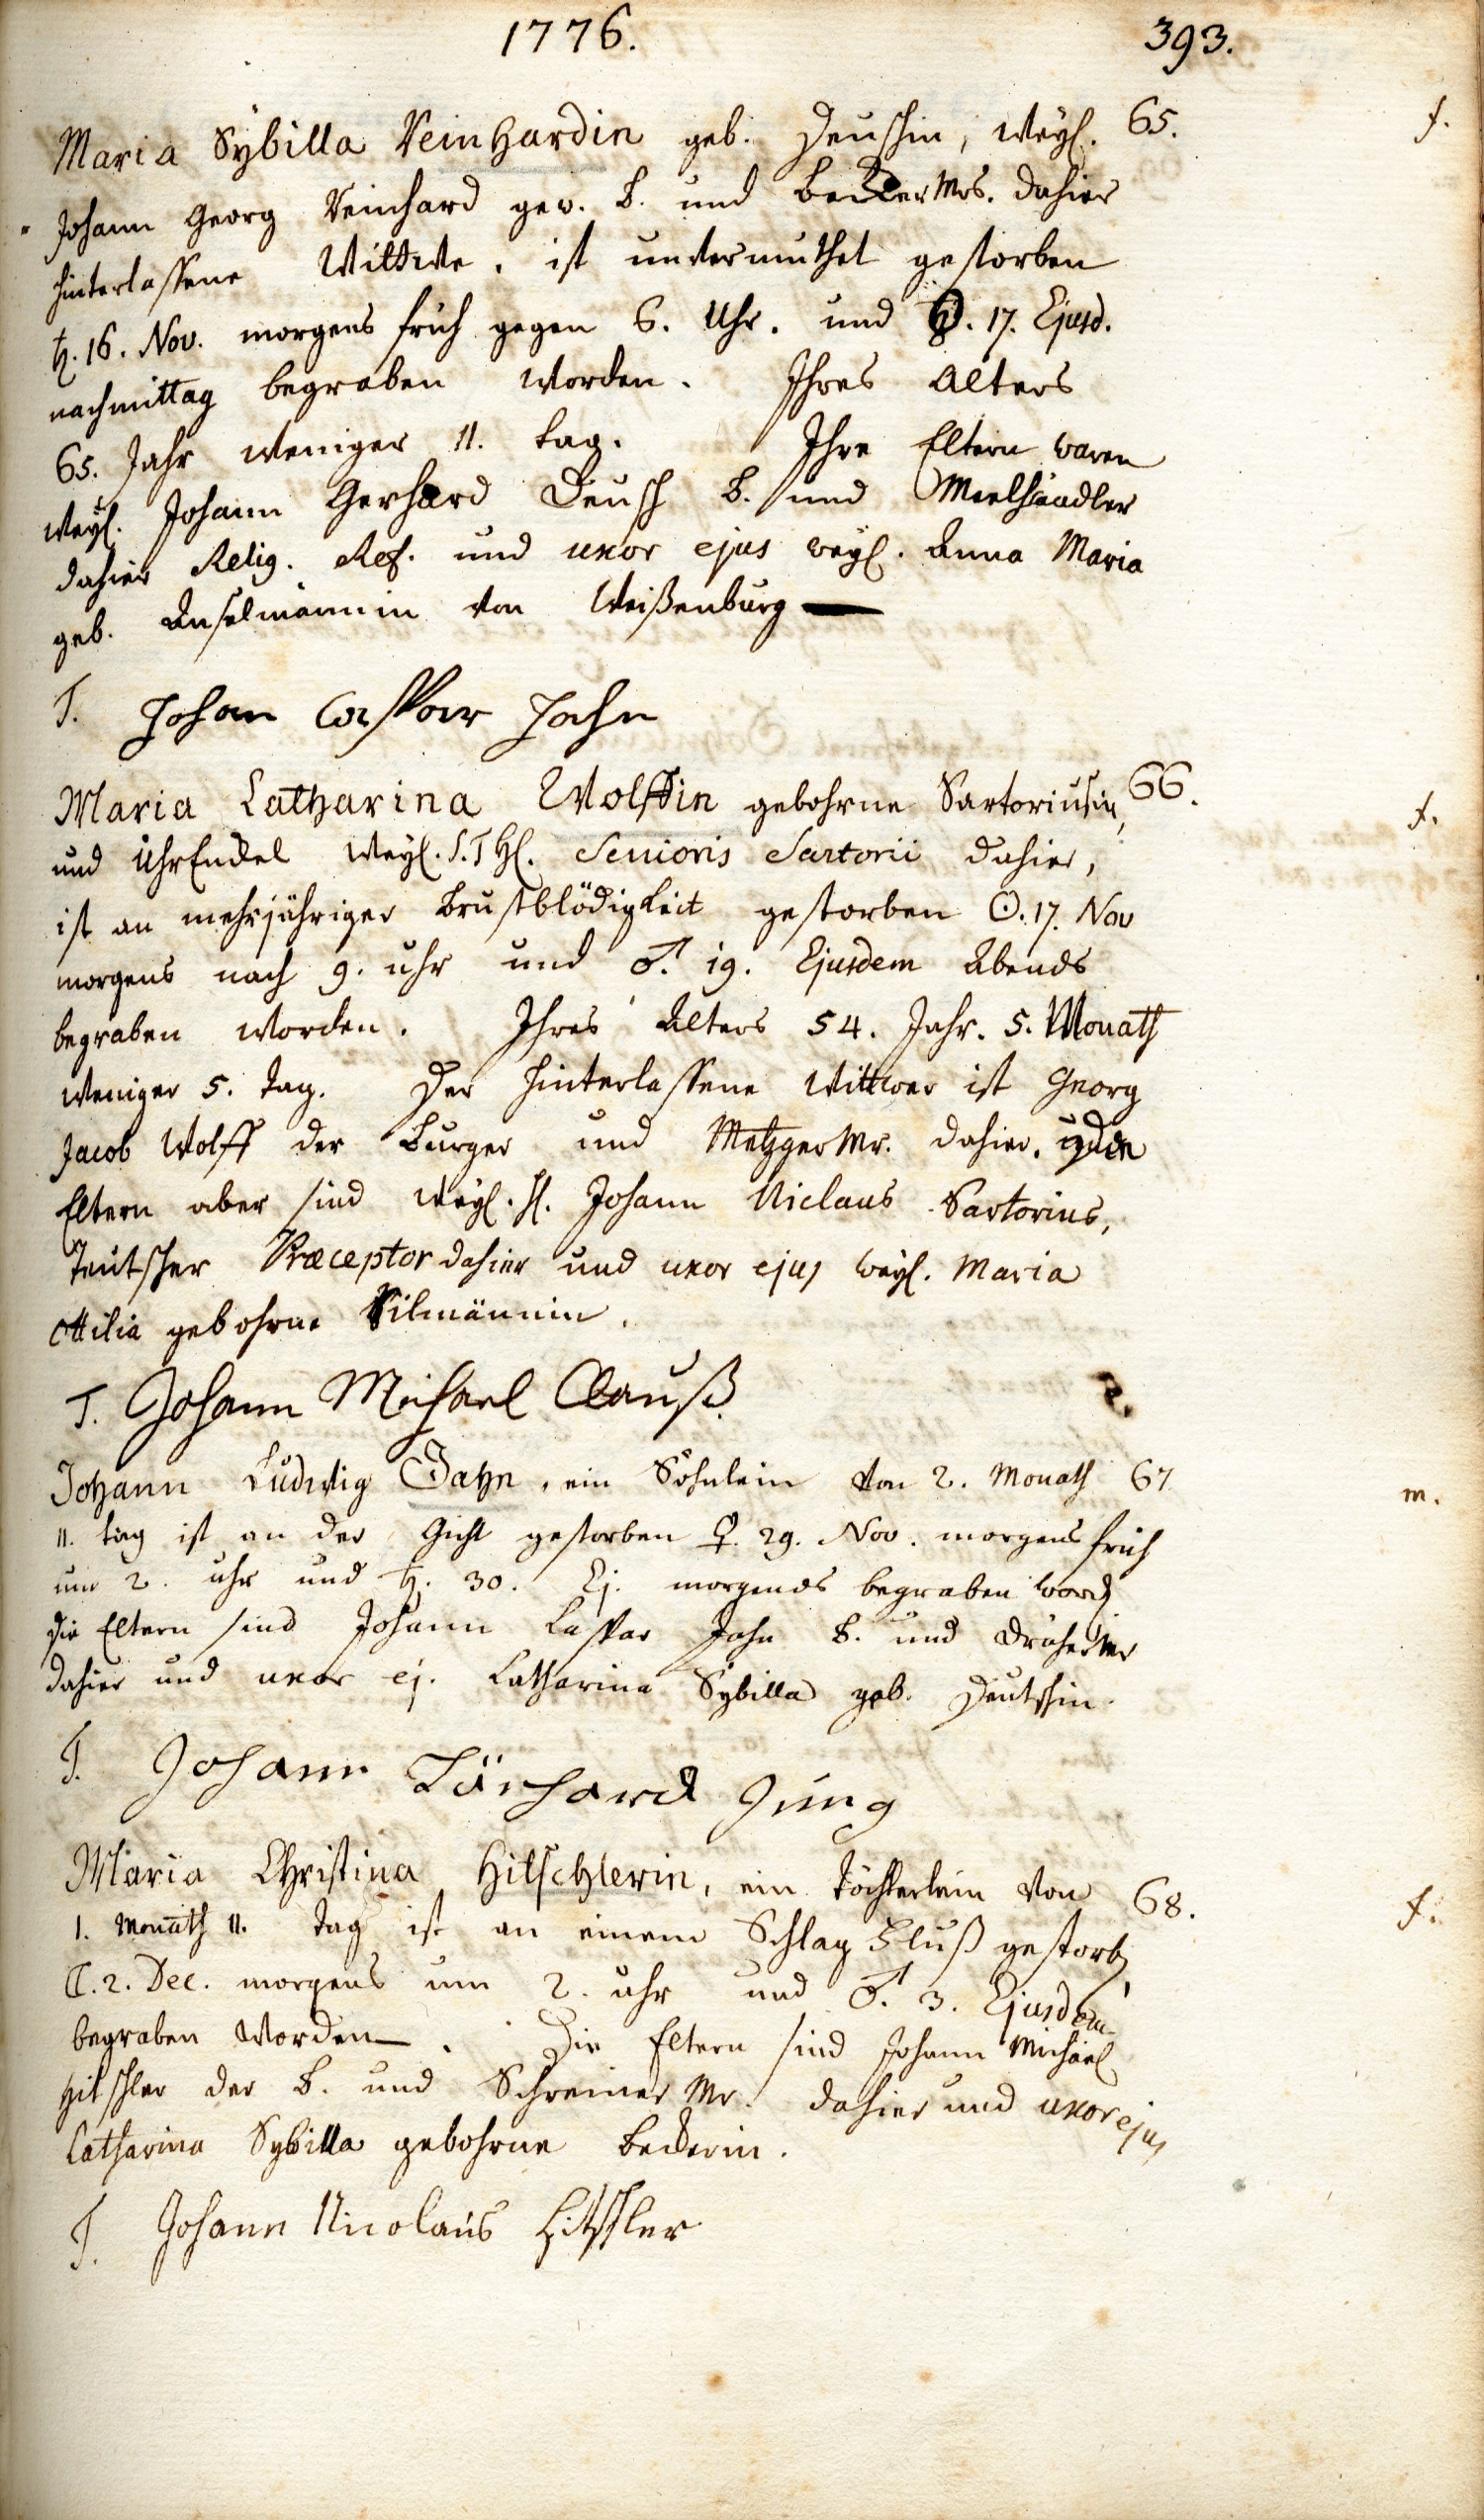 1776.
393.
Maria Sÿbilla Reinhardin geb. Deuschin, weÿl. 65. f.
Johann Georg Reinhard gew. B. und Becker Mrs. dahier
hinterlassene Wittwe, ist unvermuthet gestorben
♄. 16. Nov. morgens früh gegen 6. Uhr. und ☉. 17. Ejusd.
nachmittag begraben worden. Ihres Alters
65. Jahr weniger 11. tag. Ihre Eltern waren
weÿl. Johann Gerhard Deusch B. und Meelhändler
dahier Relig. Ref. und uxor ejus weÿl. Anna Maria
geb. Anselmännin von Weißenburg —
T. Johan Casper Jahn
Maria Catharina Wolffin gebohrne Sartoriusin, 66. f.
und UhrEnckel weÿl. S. T. H. Senioris Sartorii dahier,
ist an mehrjähriger Brustblödigkeit gestorben ☉. 17. Nov
morgens nach 9. uhr und ♂. 19. Ejusdem Abends
begraben worden. Ihres Alters 54. Jahr. 5. Monath
weniger 5. tag. Der hinterlassene Wittwer ist Georg
Jacob Wolff der Burger und Metzger Mr. dahier.
Eltern aber sind weÿl. H. Johann Niclaus Sartorius,
Teutscher Præceptor dahier und uxor ejus weÿl. Maria
Ottilia gebohrne Silmännin.
T. Johann Michael Clauß
Johann Ludwig Jahn, ein Söhnlein von 2. Monath 67 m.
11. tag ist an der Gicht gestorben ♀. 29. Nov. morgens früh
um 2. uhr und ♄. 30. Ej. morgends begraben word
die Eltern sind Johann Caspar Jahn B. und Dräher Mr
dahier und uxor ej. Catharina Sÿbilla geb. Deutschin.
T. Johann Jung
Maria Christina Hitschlerin, ein Töchterlein von 68. f.
1. Monath 11. Tag ist an einem Schlag Fluß gestorb
☾. 2. Dec. morgens um 2. uhr und ♂. 3. Ejusdem
begraben worden. Die Eltern sind Johann Michael
Hitschler der B. und Schreiner Mr. dahier und uxor ejus
Catharina Sybilla gebohrne Beckerin.
T. Johann Nicolaus Hitschler